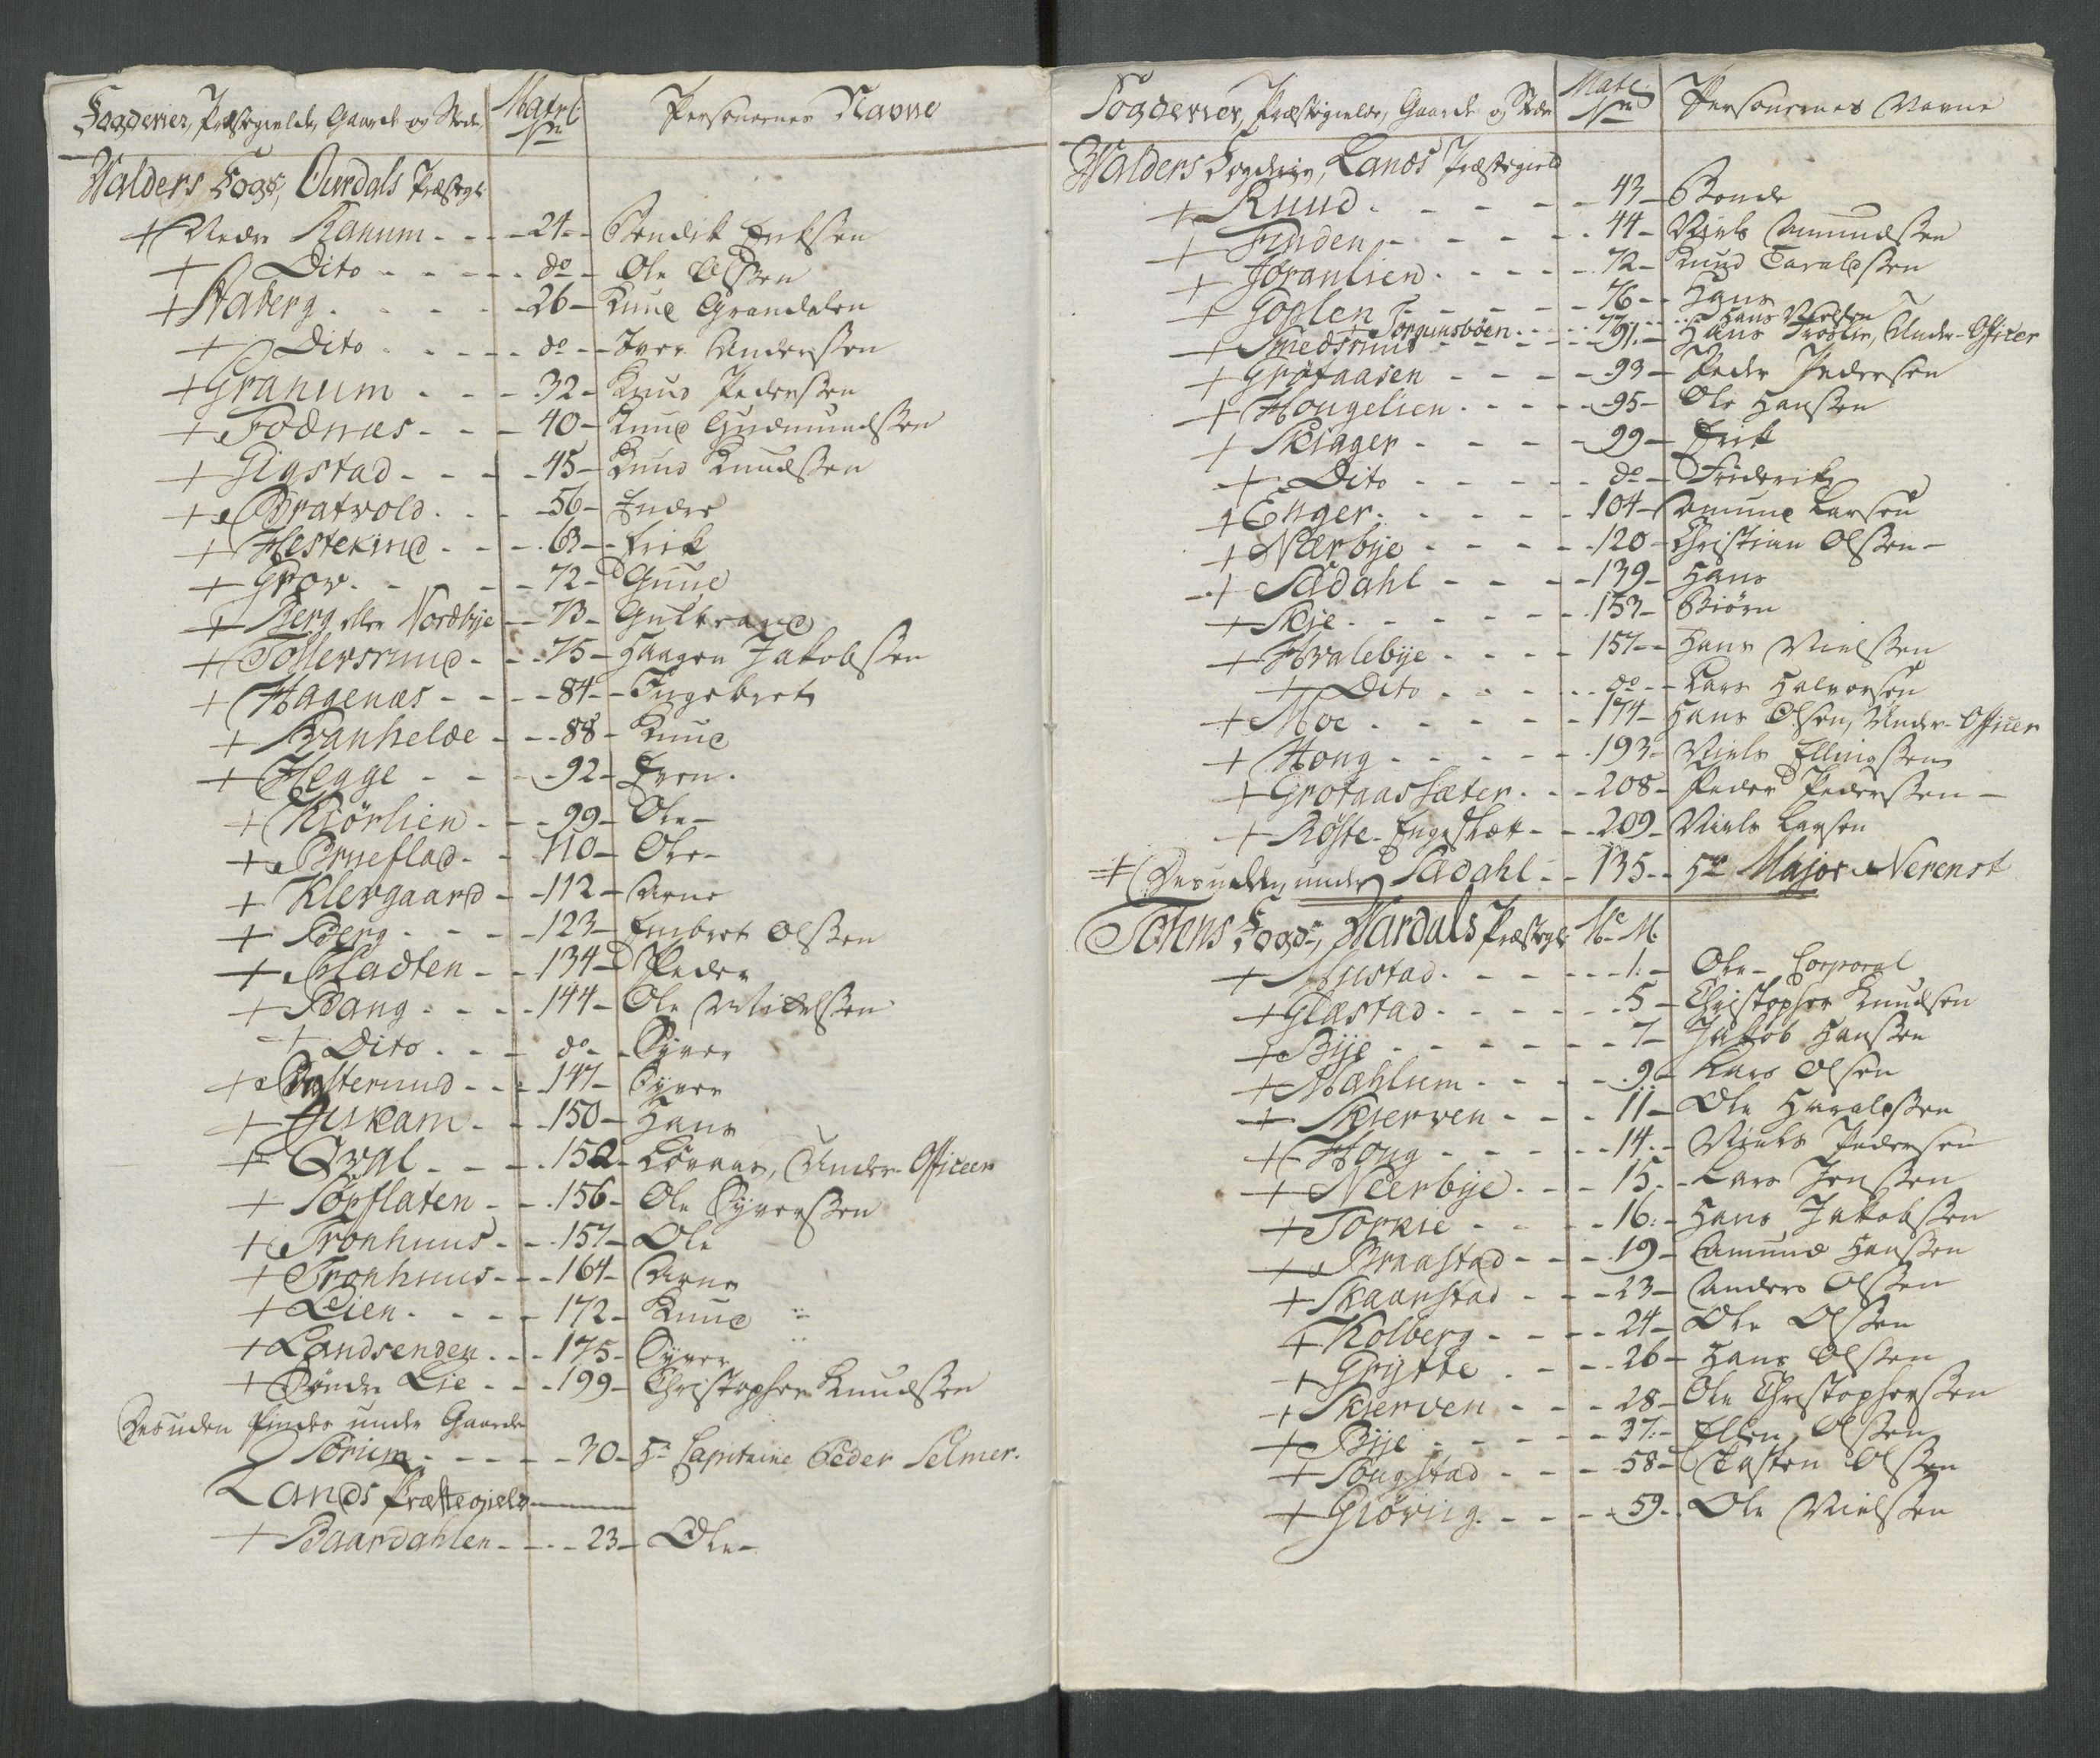 Fogderier, Præstegielde, Gaarde og Stede, Matrl: No Personernes Navne
Walders Fogd:, Ourdals Præstegl:
+ Nedre Ranum - - - 24 - Bendik Eriksen
+ Dito - - - - - do - Ole Olssen
+ Staberg - - - - 26 - Knud Grandelen
+ Dito - - - - - do - Iver Anderssen
+ Granum - - - 32 - Knud Pederssen
+ Fodnæs - - - 40 - Knud Gudmundssen
+ Gigstad - - - 45 - Knud Knudssen
+ Bratvold - - - 56 - Endre
+ Hestekind - - - 63 - Erik
+ Grov - - - 72 - Guul
+ Berg eller Nordbye - 73 - Gulbrand
+ Tollersrud - - - 75 - Haagen Jakobssen
+ Hagenæs - - - 84 - Ingebret
+ Branhelde - - - 88 - Knud
+ Hegge - - - 92 - Even.
+ Kiörlien - - - 99 - Ole -
+ Brueflad - - 110 - Ole -
+ Klevgaard - 112 - Arne
+ Berg - - - 123 - Embret Olssen
+ Fladten - - 134 - Peder
+ Bang - - - 144 - Ole Nielssen
+ Dito - - - do - Syver
+ Basterud - - - 147 - Syver
+ Fiskam - - - 150 - Hans
+ Qval - - - 152 - Lovaas, Under-Officeer
+ Törflaten - - 156 - Ole Syverssen
+ Tronhuus - - 157 - Ole
+ Tronhuus - - 164 - Arne
+ Lien - - - 172 - Knud
+ Landsenden - - 175 - Syver
+ Söndre Lie - - 199 - Christopher Knudssen
Desuden findes under Gaarde
Sörum - - - - 30 - Hr Capitaine Peder Selmer.
Lands Præstegield
+ Baardahlen - - - 23 - Ole -
Fogderier, Præstegielde, Gaarde og Stede Matl No Personernes Navne
Walders Fogderie, Lands Præstegield
+ Ruud - - - - 43 - Bonde
+ Finden - - - - 44 - Niels Amundssen
+ Joranlien - - - - 72 - Knud Taraldssen
+ Goplen - - - - 76 - Hans
Torgunsböen - - - 77 - Hans Nielsen
+ Smedsrud - - - - 91 - Hans Froslie, Under-Officer
+ Gröfaasen - - - - 93 - Peder Pedersen
+ Hougelien - - - - 95 - Ole Hanssen
+ Skiager - - - - 99 - Erik
+ Dito - - - - do - Friderik
+ Enger - - - - 104 - Amund Larsen
+ Nærbye - - - - 120 - Christian Olssen -
+ Sædahl - - - - 139 - Hans
+ Skie - - - - 153 - Biörn
+ Hvalebye - - - - 157 - Hans Nielssen
+ Dito - - - - do - Lars Halvorsen
+ Moe - - - - 174 - Hans Olsen, Under-Officer
+ Houg - - - - 193 - Niels Ellingssen
+ Grotaassæter - - - 208 - Peder Pederssen -
+ Röste-Engeskæt - - - 209 - Niels Larsen
+ Desuden under Sædahl - - 135 - Hr Major Nerenst
Totens Fogd:, Wardals Præstegl: No M.
+ Mustad - - - - 1 - Ole - Corporal
+ Glæstad - - - - 5 - Christopher Knudsen
+ Bye - - - - 7 - Jakob Hanssen
+ Mæhlum - - - - 9 - Lars Olsen
+ Skierven - - - 11 - Ole Haraldssen
+ Houg - - - - 14 - Niels Pedersen
+ Nærbye - - - 15 - Lars Jenssen
+ Torkie - - - - 16 - Hans Jakobssen
+ Braastad - - - 19 - Amund Hanssen
+ Skaarstad - - - 23 - Anders Olssen
+ Kolberg - - - - 24 - Ole Olssen
+ Grytte - - - 26 - Hans Olssen
+ Skierven - - - 28 - Ole Christopherssen
+ Bye - - - - 37 - Ellen Olssen
+ Sougstad - - - 58 - Casten Olssen
+ Giövig - - - - 59 - Ole Nielssen